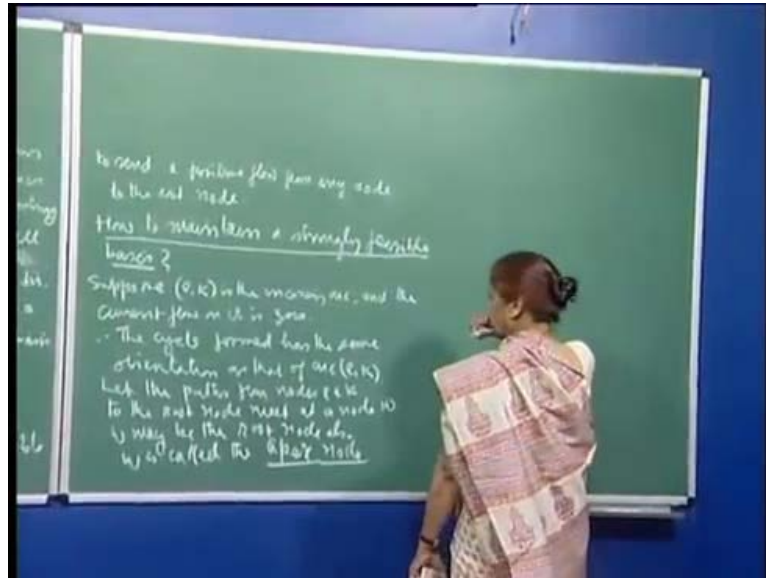 to send a positive flow from any node
to the root node
How to maintain a strongly feasible
basis?
Suppose (l,k) is the incoming arc, and the
current flow on it is zero
∴ The cycle formed has the same
orientation as that of arc (l,k)
Let the paths from nodes l & k
to the root node meet at a node w
w may be the root node also
w is called the apex node